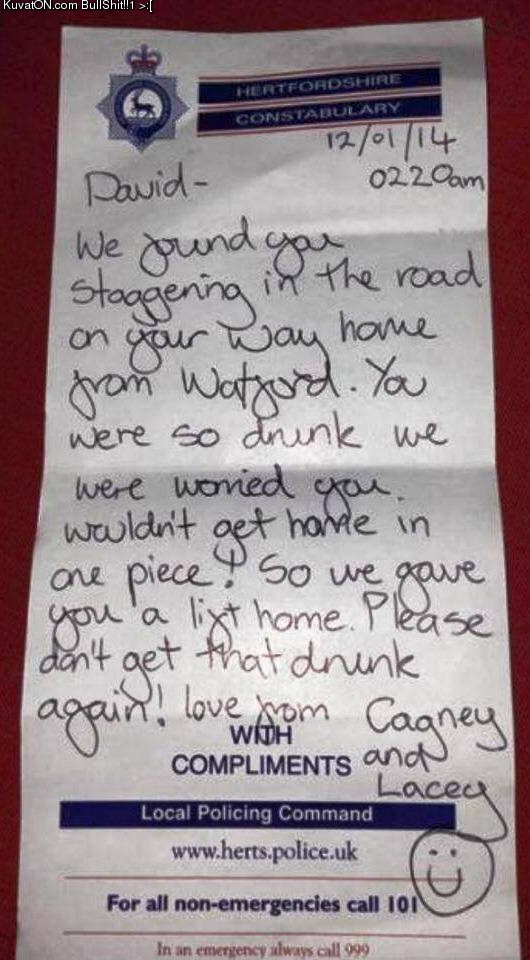 KuvatON.com BullShit!!1 >:[
HERTFORDSHIRE
CONSTABULARY
12/01/14
0220am
David-
We found you
staggering in the road
on your way home
from Watford. You
were so drunk we
were worried you
wouldn't get home in
one piece! So we gave
you a lift home. Please
don't get that drunk
again! love from Cagney
and
Lacey
WITH
COMPLIMENTS
Local Policing Command
www.herts.police.uk
For all non-emergencies call 101
In an emergency always call 999